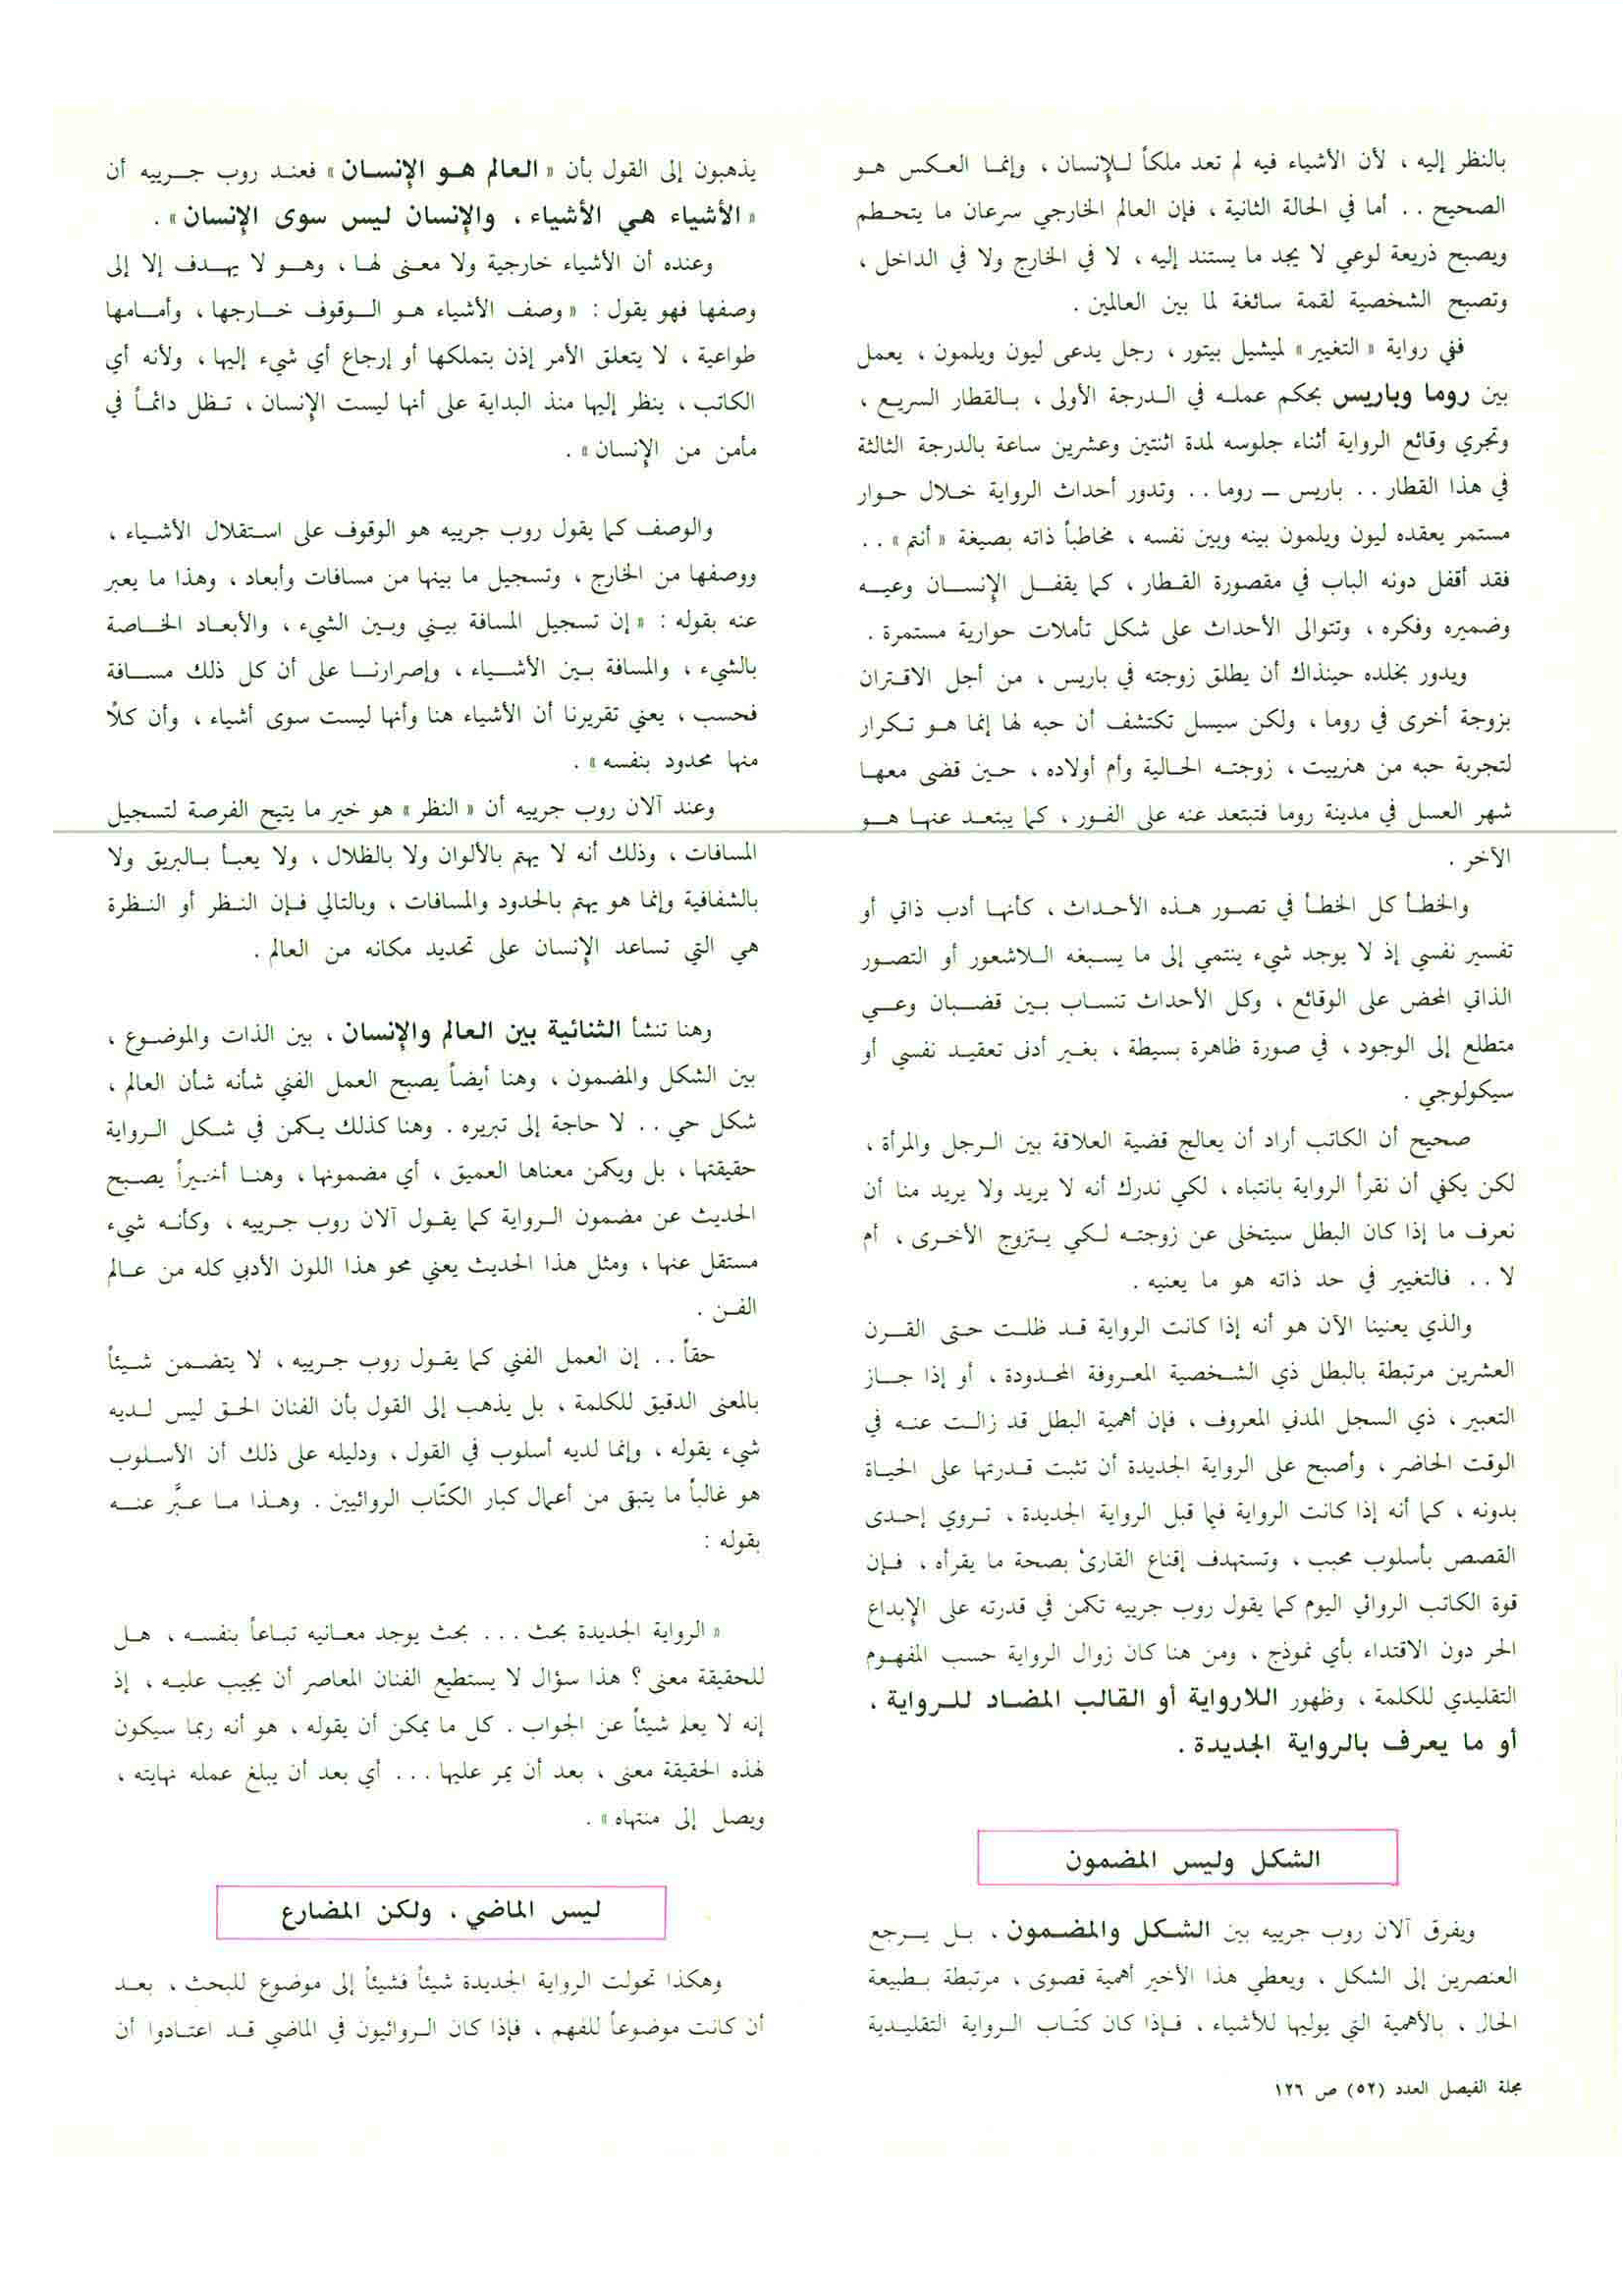 بالنظر إليه ، لأن الأشياء فيه لم تعد ملكاً للإنسان ، وإنما العكس هو
الصحيح .. أما في الحالة الثانية ، فإن العالم الخارجي سرعان ما يتحطم
ويصبح ذريعة لوعي لا يجد ما يستند إليه ، لا في الخارج ولا في الداخل ،
وتصبح الشخصية لقمة سائغة لما بين العالمين .
ففي رواية « التغيير » لميشيل بيتور ، رجل يدعى ليون ويلمون ، يعمل
بين روما وباريس بحكم عمله في الدرجة الأولى ، بالقطار السريع ،
وتجري وقائع الرواية أثناء جلوسه لمدة اثنتين وعشرين ساعة بالدرجة الثالثة
في هذا القطار .. باريس ـ روما .. وتدور أحداث الرواية خلال حوار
مستمر يعقده ليون ويلمون بينه وبين نفسه ، مخاطباً ذاته بصيغة « أنتم » ..
فقد أقفل دونه الباب في مقصورة القطار ، كما يقفل الإنسان وعيه
وضميره وفكره ، وتتوالى الأحداث على شكل تأملات حوارية مستمرة .
ويدور بخلده حينذاك أن يطلق زوجته في باريس ، من أجل الاقتران
بزوجة أخرى في روما ، ولكن سيسل تكتشف أن حبه لها إنما هو تكرار
لتجربة حبه من هنرييت ، زوجته الحالية وأم أولاده ، حين قضى معها
شهر العسل في مدينة روما فتبتعد عنه على الفور ، كما يبتعد عنها هو
الآخر .
والخطأ كل الخطأ في تصور هذه الأحداث ، كأنها أدب ذاتي أو
تفسير نفسي إذ لا يوجد شيء ينتمي إلى ما يسبغه اللاشعور أو التصور
الذاتي المحض على الوقائع ، وكل الأحداث تنساب بين قضبان وعي
متطلع إلى الوجود ، في صورة ظاهرة بسيطة ، بغير أدنى تعقيد نفسي أو
سيكولوجي .
صحيح أن الكاتب أراد أن يعالج قضية العلاقة بين الرجل والمرأة ،
لكن يكفي أن نقرأ الرواية بانتباه ، لكي ندرك أنه لا يريد ولا يريد منا أن
نعرف ما إذا كان البطل سيتخلى عن زوجته لكي يتزوج الأخرى ، أم
لا .. فالتغيير في حد ذاته هو ما يعنيه .
والذي يعنينا الآن هو أنه إذا كانت الرواية قد ظلت حتى القرن
العشرين مرتبطة بالبطل ذي الشخصية المعروفة المحدودة ، أو إذا جاز
التعبير ، ذي السجل المدني المعروف ، فإن أهمية البطل قد زالت عنه في
الوقت الحاضر ، وأصبح على الرواية الجديدة أن تثبت قدرتها على الحياة
بدونه ، كما أنه إذا كانت الرواية فيما قبل الرواية الجديدة ، تروي إحدى
القصص بأسلوب محبب ، وتستهدف إقناع القارئ بصحة ما يقرأه ، فإن
قوة الكاتب الروائي اليوم كما يقول روب جرييه تكمن في قدرته على الإبداع
الحر دون الاقتداء بأي نموذج ، ومن هنا كان زوال الرواية حسب المفهوم
التقليدي للكلمة ، وظهور اللارواية أو القالب المضاد للرواية ،
أو ما يعرف بالرواية الجديدة .
الشكل وليس المضمون
ويفرق آلان روب جرييه بين الشكل والمضمون ، بل يرجع
العنصرين إلى الشكل ، ويعطي هذا الأخير أهمية قصوى ، مرتبطة بطبيعة
الحال ، بالأهمية التي يوليها للأشياء ، فإذا كان كتّاب الرواية التقليدية
يذهبون إلى القول بأن « العالم هو الإنسان » فعند روب جرييه أن
« الأشياء هي الأشياء ، والإنسان ليس سوى الإنسان » .
وعنده أن الأشياء خارجية ولا معنى لها ، وهو لا يهدف إلا إلى
وصفها فهو يقول : « وصف الأشياء هو الوقوف خارجها ، وأمامها
طواعية ، لا يتعلق الأمر إذن بتملكها أو إرجاع أي شيء إليها ، ولأنه أي
الكاتب ، ينظر إليها منذ البداية على أنها ليست الإنسان ، تظل دائماً في
مأمن من الإنسان » .
والوصف كما يقول روب جرييه هو الوقوف على استقلال الأشياء ،
ووصفها من الخارج ، وتسجيل ما بينها من مسافات وأبعاد ، وهذا ما يعبر
عنه بقوله : « إن تسجيل المسافة بيني وبين الشيء ، والأبعاد الخاصة
بالشيء ، والمسافة بين الأشياء ، وإصرارنا على أن كل ذلك مسافة
فحسب ، يعني تقريرنا أن الأشياء هنا وأنها ليست سوى أشياء ، وأن كلاً
منها محدود بنفسه » .
وعند آلان روب جرييه أن « النظر » هو خير ما يتيح الفرصة لتسجيل
المسافات ، وذلك أنه لا يهتم بالألوان ولا بالظلال ، ولا يعبأ بالبريق ولا
بالشفافية وإنما هو يهتم بالحدود والمسافات ، وبالتالي فإن النظر أو النظرة
هي التي تساعد الإنسان على تحديد مكانه من العالم .
وهنا تنشأ الثنائية بين العالم والإنسان ، بين الذات والموضوع ،
بين الشكل والمضمون ، وهنا أيضاً يصبح العمل الفني شأنه شأن العالم ،
شكل حي .. لا حاجة إلى تبريره . وهنا كذلك يكمن في شكل الرواية
حقيقتها ، بل ويكمن معناها العميق ، أي مضمونها ، وهنا أخيراً يصبح
الحديث عن مضمون الرواية كما يقول آلان روب جرييه ، وكأنه شيء
مستقل عنها ، ومثل هذا الحديث يعني محو هذا اللون الأدبي كله من عالم
الفن .
حقاً .. إن العمل الفني كما يقول روب جرييه ، لا يتضمن شيئاً
بالمعنى الدقيق للكلمة ، بل يذهب إلى القول بأن الفنان الحق ليس لديه
شيء يقوله ، وإنما لديه أسلوب في القول ، ودليله على ذلك أن الأسلوب
هو غالباً ما يتبقى من أعمال كبار الكتّاب الروائيين . وهذا ما عبَّر عنه
بقوله :
« الرواية الجديدة بحث ... بحث يوجد معانيه تباعاً بنفسه ، هل
للحقيقة معنى ؟ هذا سؤال لا يستطيع الفنان المعاصر أن يجيب عليه ، إذ
إنه لا يعلم شيئاً عن الجواب . كل ما يمكن أن يقوله ، هو أنه ربما سيكون
لهذه الحقيقة معنى ، بعد أن يمر عليها ... أي بعد أن يبلغ عمله نهايته ،
ويصل إلى منتهاه » .
ليس الماضي ، ولكن المضارع
وهكذا تحولت الرواية الجديدة شيئاً فشيئاً إلى موضوع للبحث ، بعد
أن كانت موضوعاً للفهم ، فإذا كان الروائيون في الماضي قد اعتادوا أن
مجلة الفيصل العدد (٥٢) ص ١٢٦